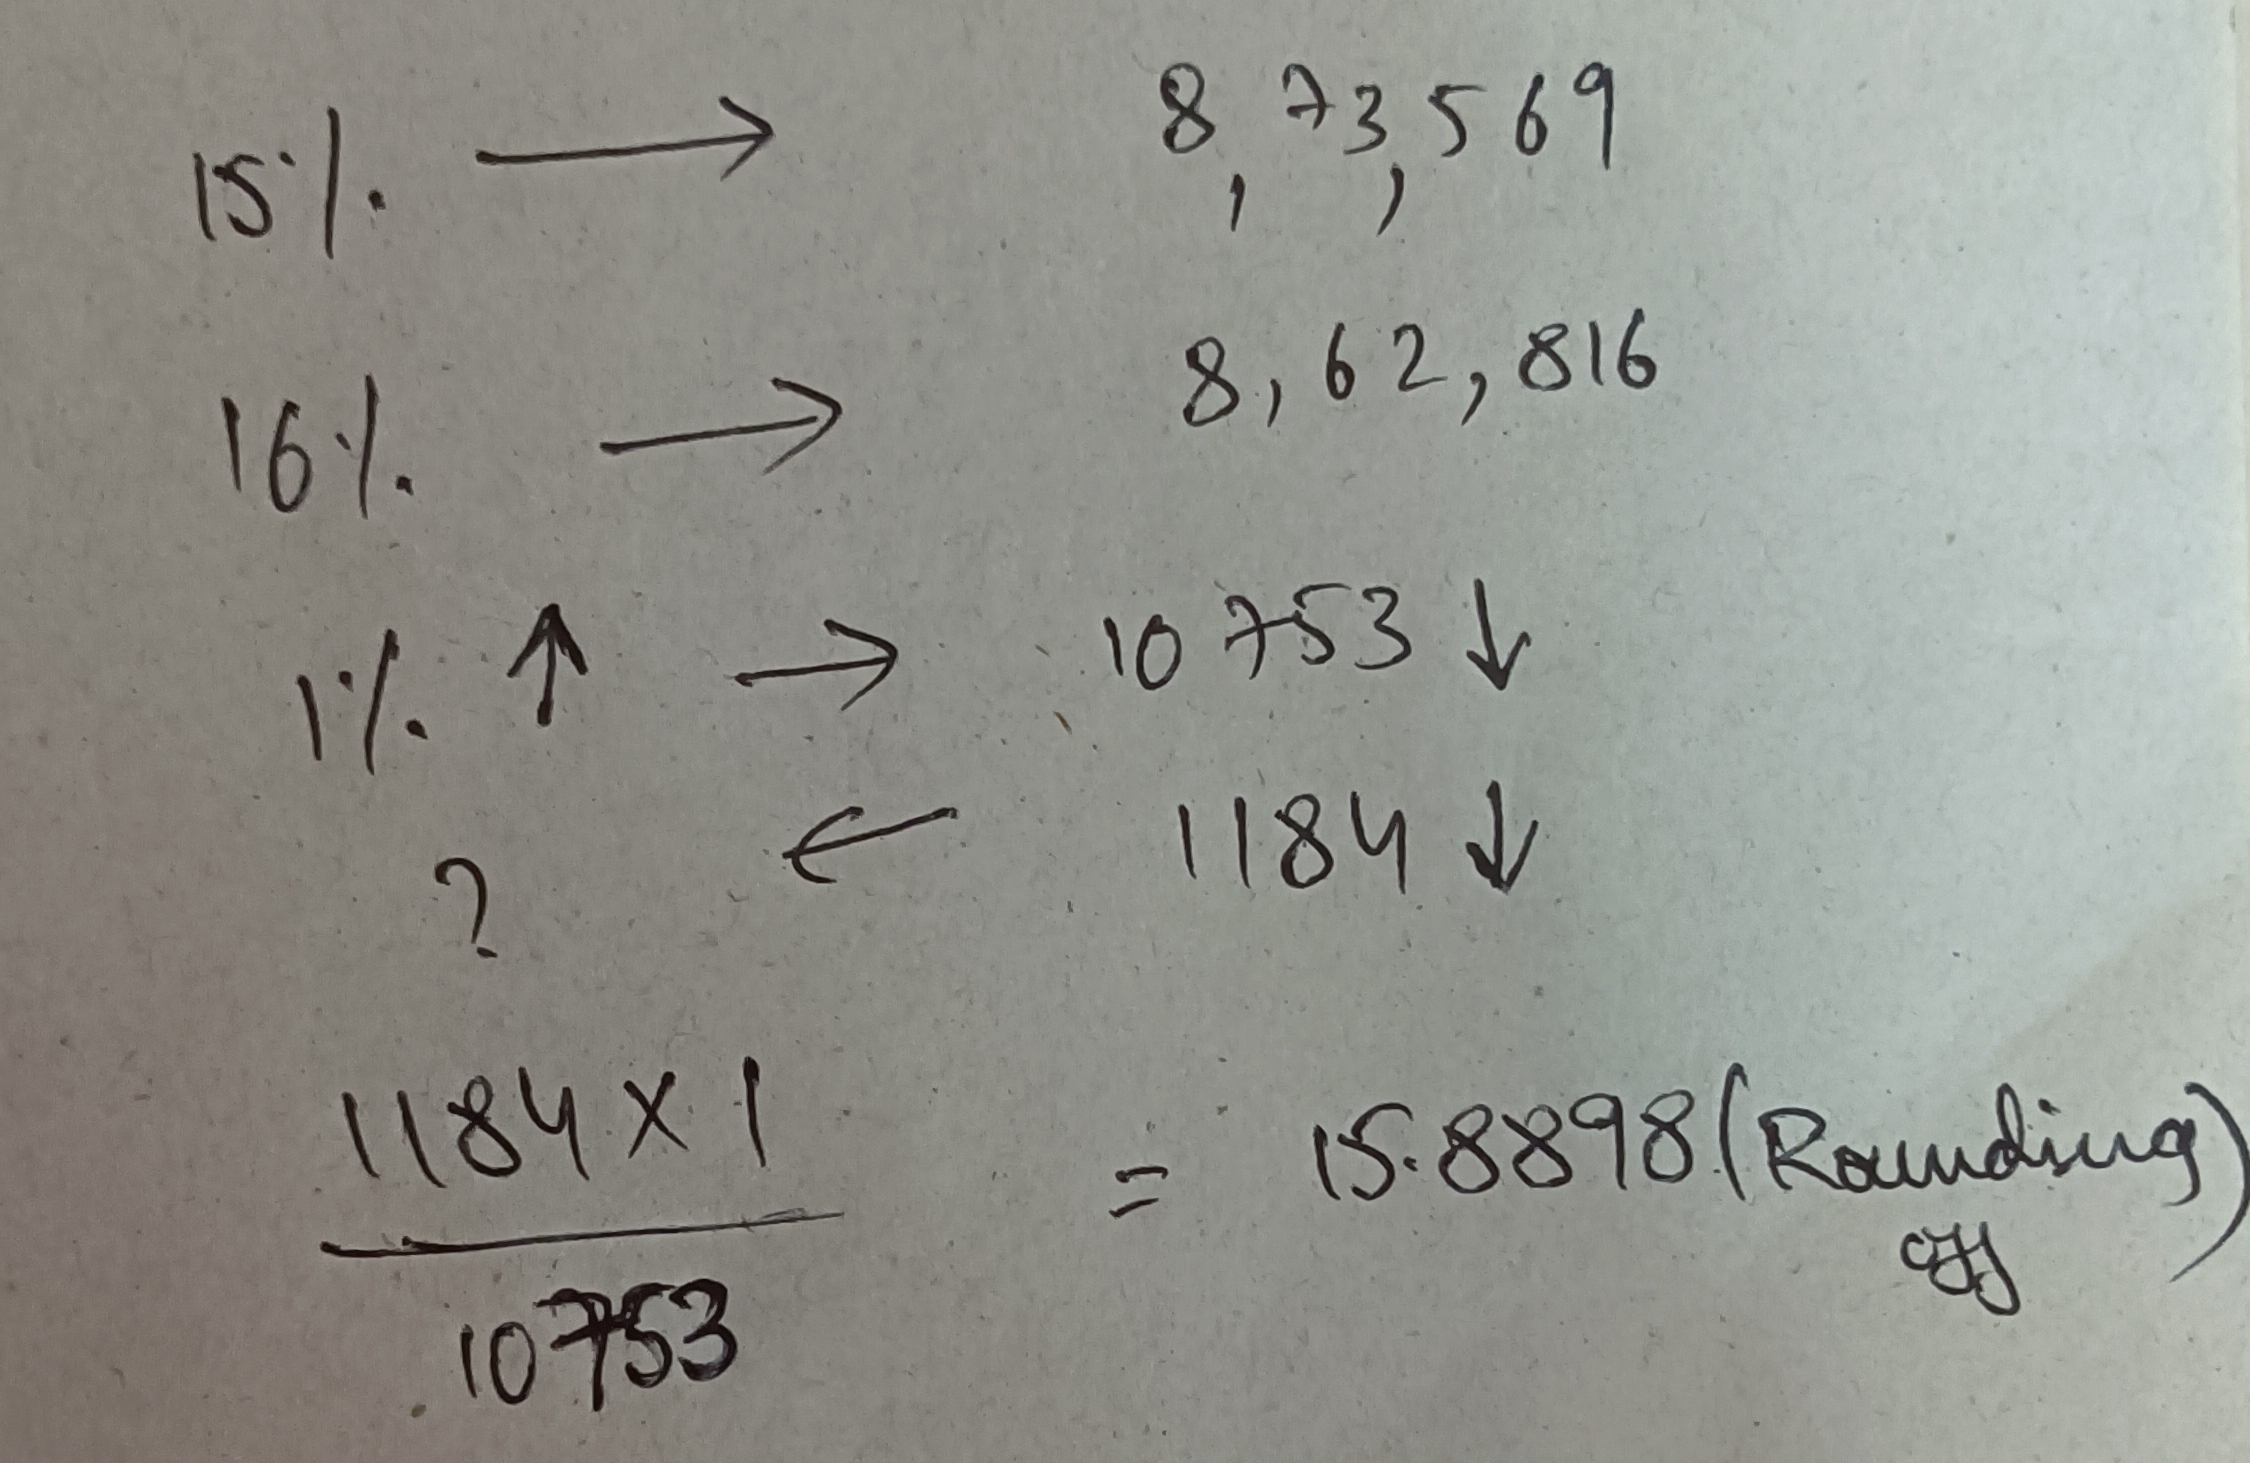 15% → 8,73,569
16% → 8,62,816
1% ↑ → 10753 ↓
? ← 1184 ↓
1184 × 1
10753
= 15.8898 (Rounding off)